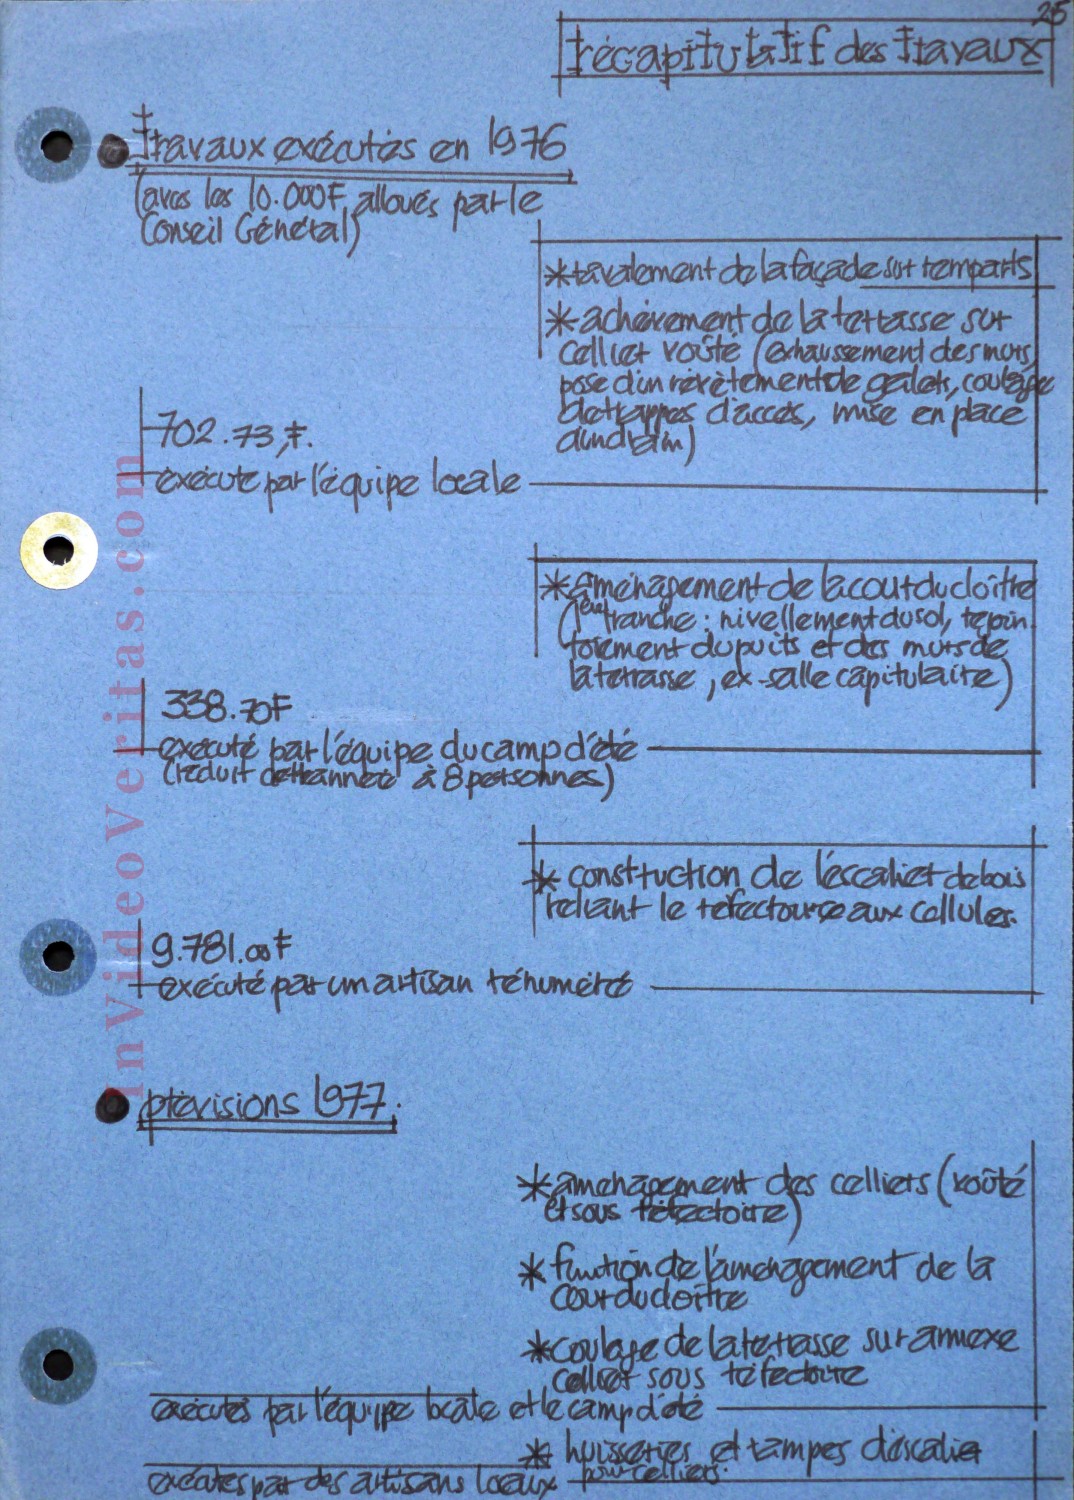 25
récapitulatif des travaux
travaux exécutés en 1976
(avec les 10.000F alloués par le
Conseil Général)
*ravalement de la façade sur remparts
*achèvement de la terrasse sur
cellier voûté (exhaussement des murs,
pose d'un revêtement de galets, coulage
de trappes d'accés, mise en place
d'un drain)
702.73,F.
exécuté par l'équipe locale
*aménagement de la cour du cloître
(1ère tranche : nivellement du sol, rejoin
toiement du puits et des murs de
la terrasse, ex-salle capitulaire)
338.70F
exécuté par l'équipe du camp d'été
(réduit cette année à 8 personnes)
* construction de l'éscalier de bois
reliant le réfectoire aux cellules.
9.781.00F
exécuté par un artisan rénuméré
prévisions 1977.
*aménagement des celliers (voûté
et sous réfectoire)
* finition de l'aménagement de la
cour du cloître
*coulage de la terrasse sur annexe
cellier sous réfectoire
exécutés par l'équipe locale et le camp d'été
* huisseries et rampes d'éscalier
pour celliers.
exécutés par des artisans locaux
InVideoVeritas.com